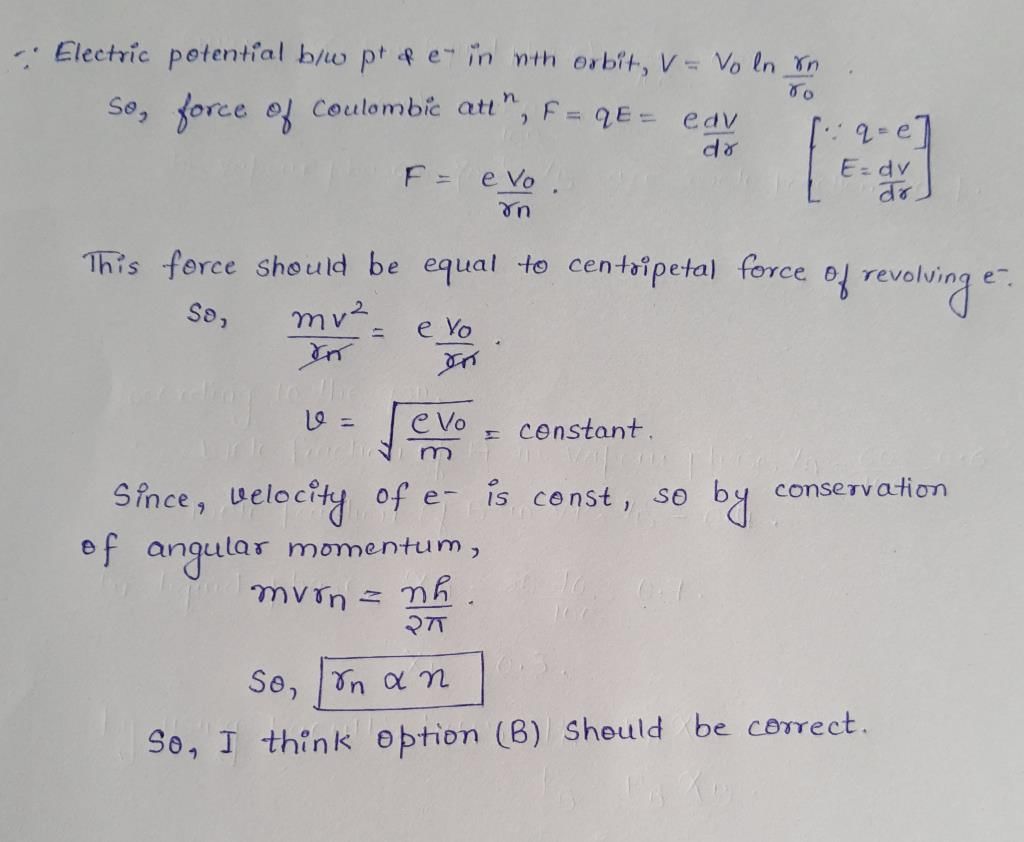 ∵ Electric potential b/w p+ & e- in nth orbit, V = V0 ln rn/r0 .
So, force of Coulombic attⁿ, F = qE = e dV/dr [∵ q = e]
[E = dv/dr]
F = e V0/rn .
This force should be equal to centripetal force of revolving e-.
So, mv²/rn = e V0/rn .
v = √(e V0/m) = constant.
Since, velocity of e- is const, so by conservation
of angular momentum,
mvrn = nh/2π .
So, rn α n
So, I think option (B) should be correct.